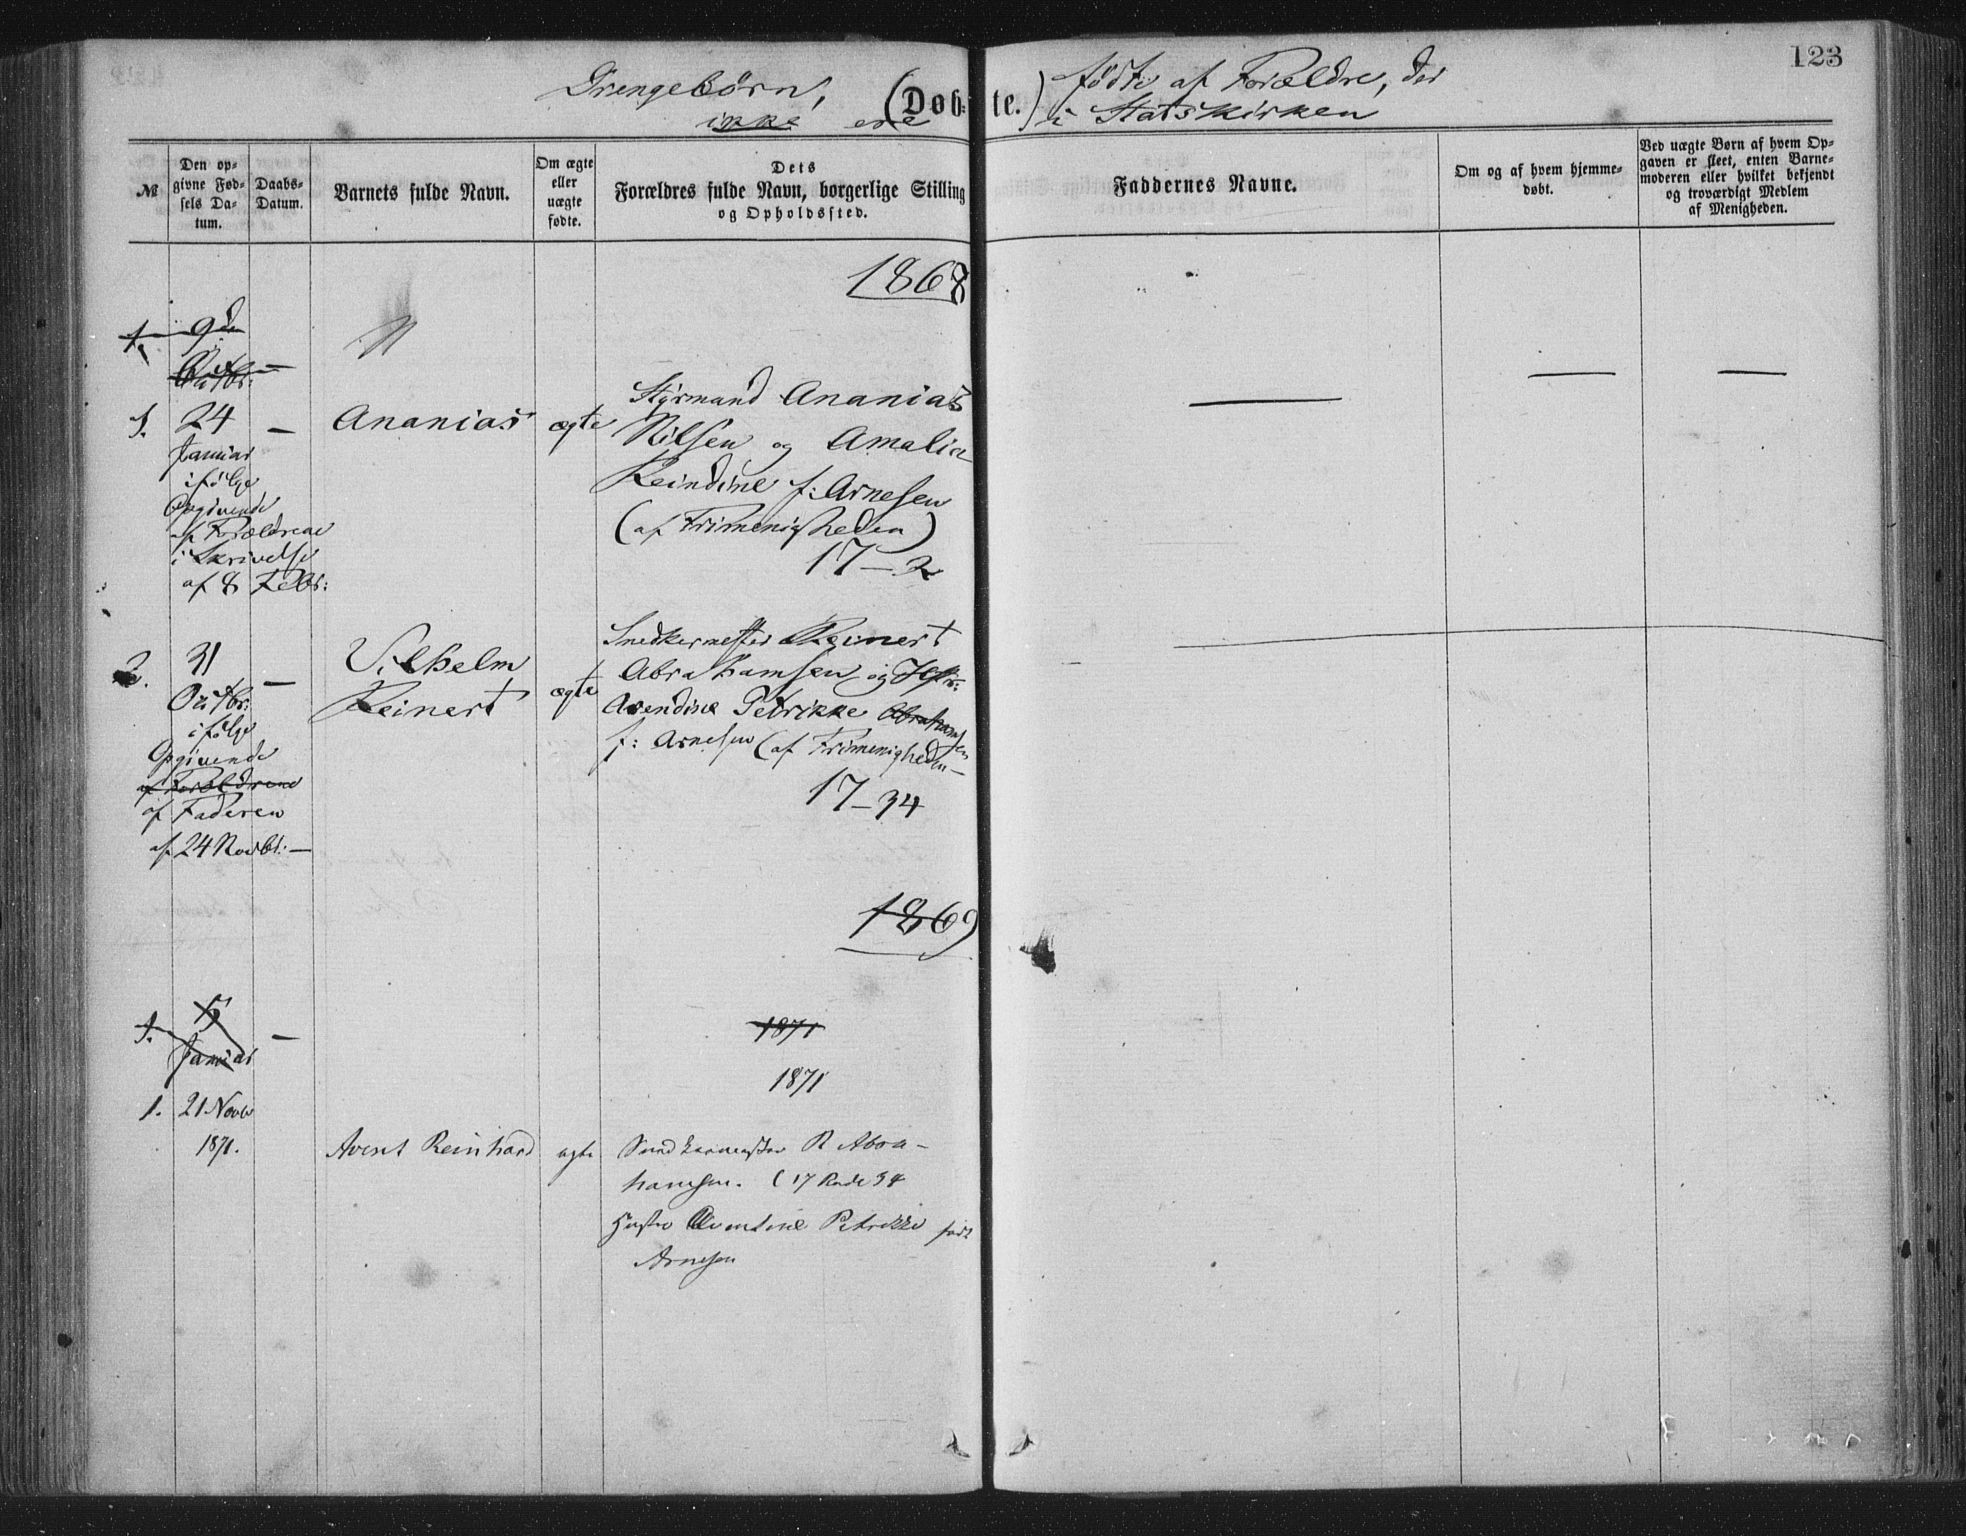 123
Drengebørn, (Døb- te.) fødte af Forældre, der
ikke ere i Statskirken
№
Den op-
givne Fød-
sels Da-
tum.
Daabs-
Datum.
Barnets fulde Navn.
Om ægte
eller
uægte
fødte.
Dets
Forældres fulde Navn, borgerlige Stilling
og Opholdssted.
Faddernes Navne.
Om og af hvem hjemme-
døbt.
Ved uægte Børn af hvem Op-
gaven er skeet, enten Barne-
moderen eller hvilket bekjendt
og troværdigt Medlem
af Menigheden.
1868
1. 9de
Octbr: —
1. 24 — Ananias ægte Styrmand Ananias
Januar Nilsen og Amalia
ifølge Reindine f: Arnesen
Opgivende (af Frimenigheden)
af Forældrene 17 — 2
i Skrivelse
af 8 Febr:
2. 31 — Vilhelm ægte Snedkermester Reinert
Octbr: Reinert Abrahamsen og Hstr:
ifølge Avendine Petrikke Abrahamsen
Opgivende f: Arnesen (af Frimenigheden —
af Forældrene 17 — 34
af Faderen
af 24 Novbr: —
1869
1. 5 —
Januar
1871
1871
1. 21 Novbr
1871. Avent Reinhard ægte Snedkermester R Abra-
hamsen. (17 Rode 34
Hustro Aventine Petrikke født
Arnesen